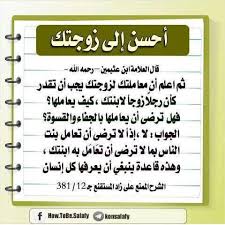 أحسن إلى زوجتك
قال العلامة ابن عثيمين - رحمه الله -
ثم اعلم أن معاملتك لزوجتك يجب أن تقدر
كأن رجلا زوجاً لابنتك ، كيف يعاملها ؟
فهل ترضى أن يعاملها بالجفاء والقسوة ؟
الجواب : لا ، إذاً لا ترضى أن تعامل بنت
الناس بما لا ترضى أن تعامل به ابنتك ،
وهذه قاعدة ينبغي أن يعرفها كل إنسان
الشرح الممتع على زاد المستقنع ج 12/ 381
How.ToBe.Salafy
konsalafy